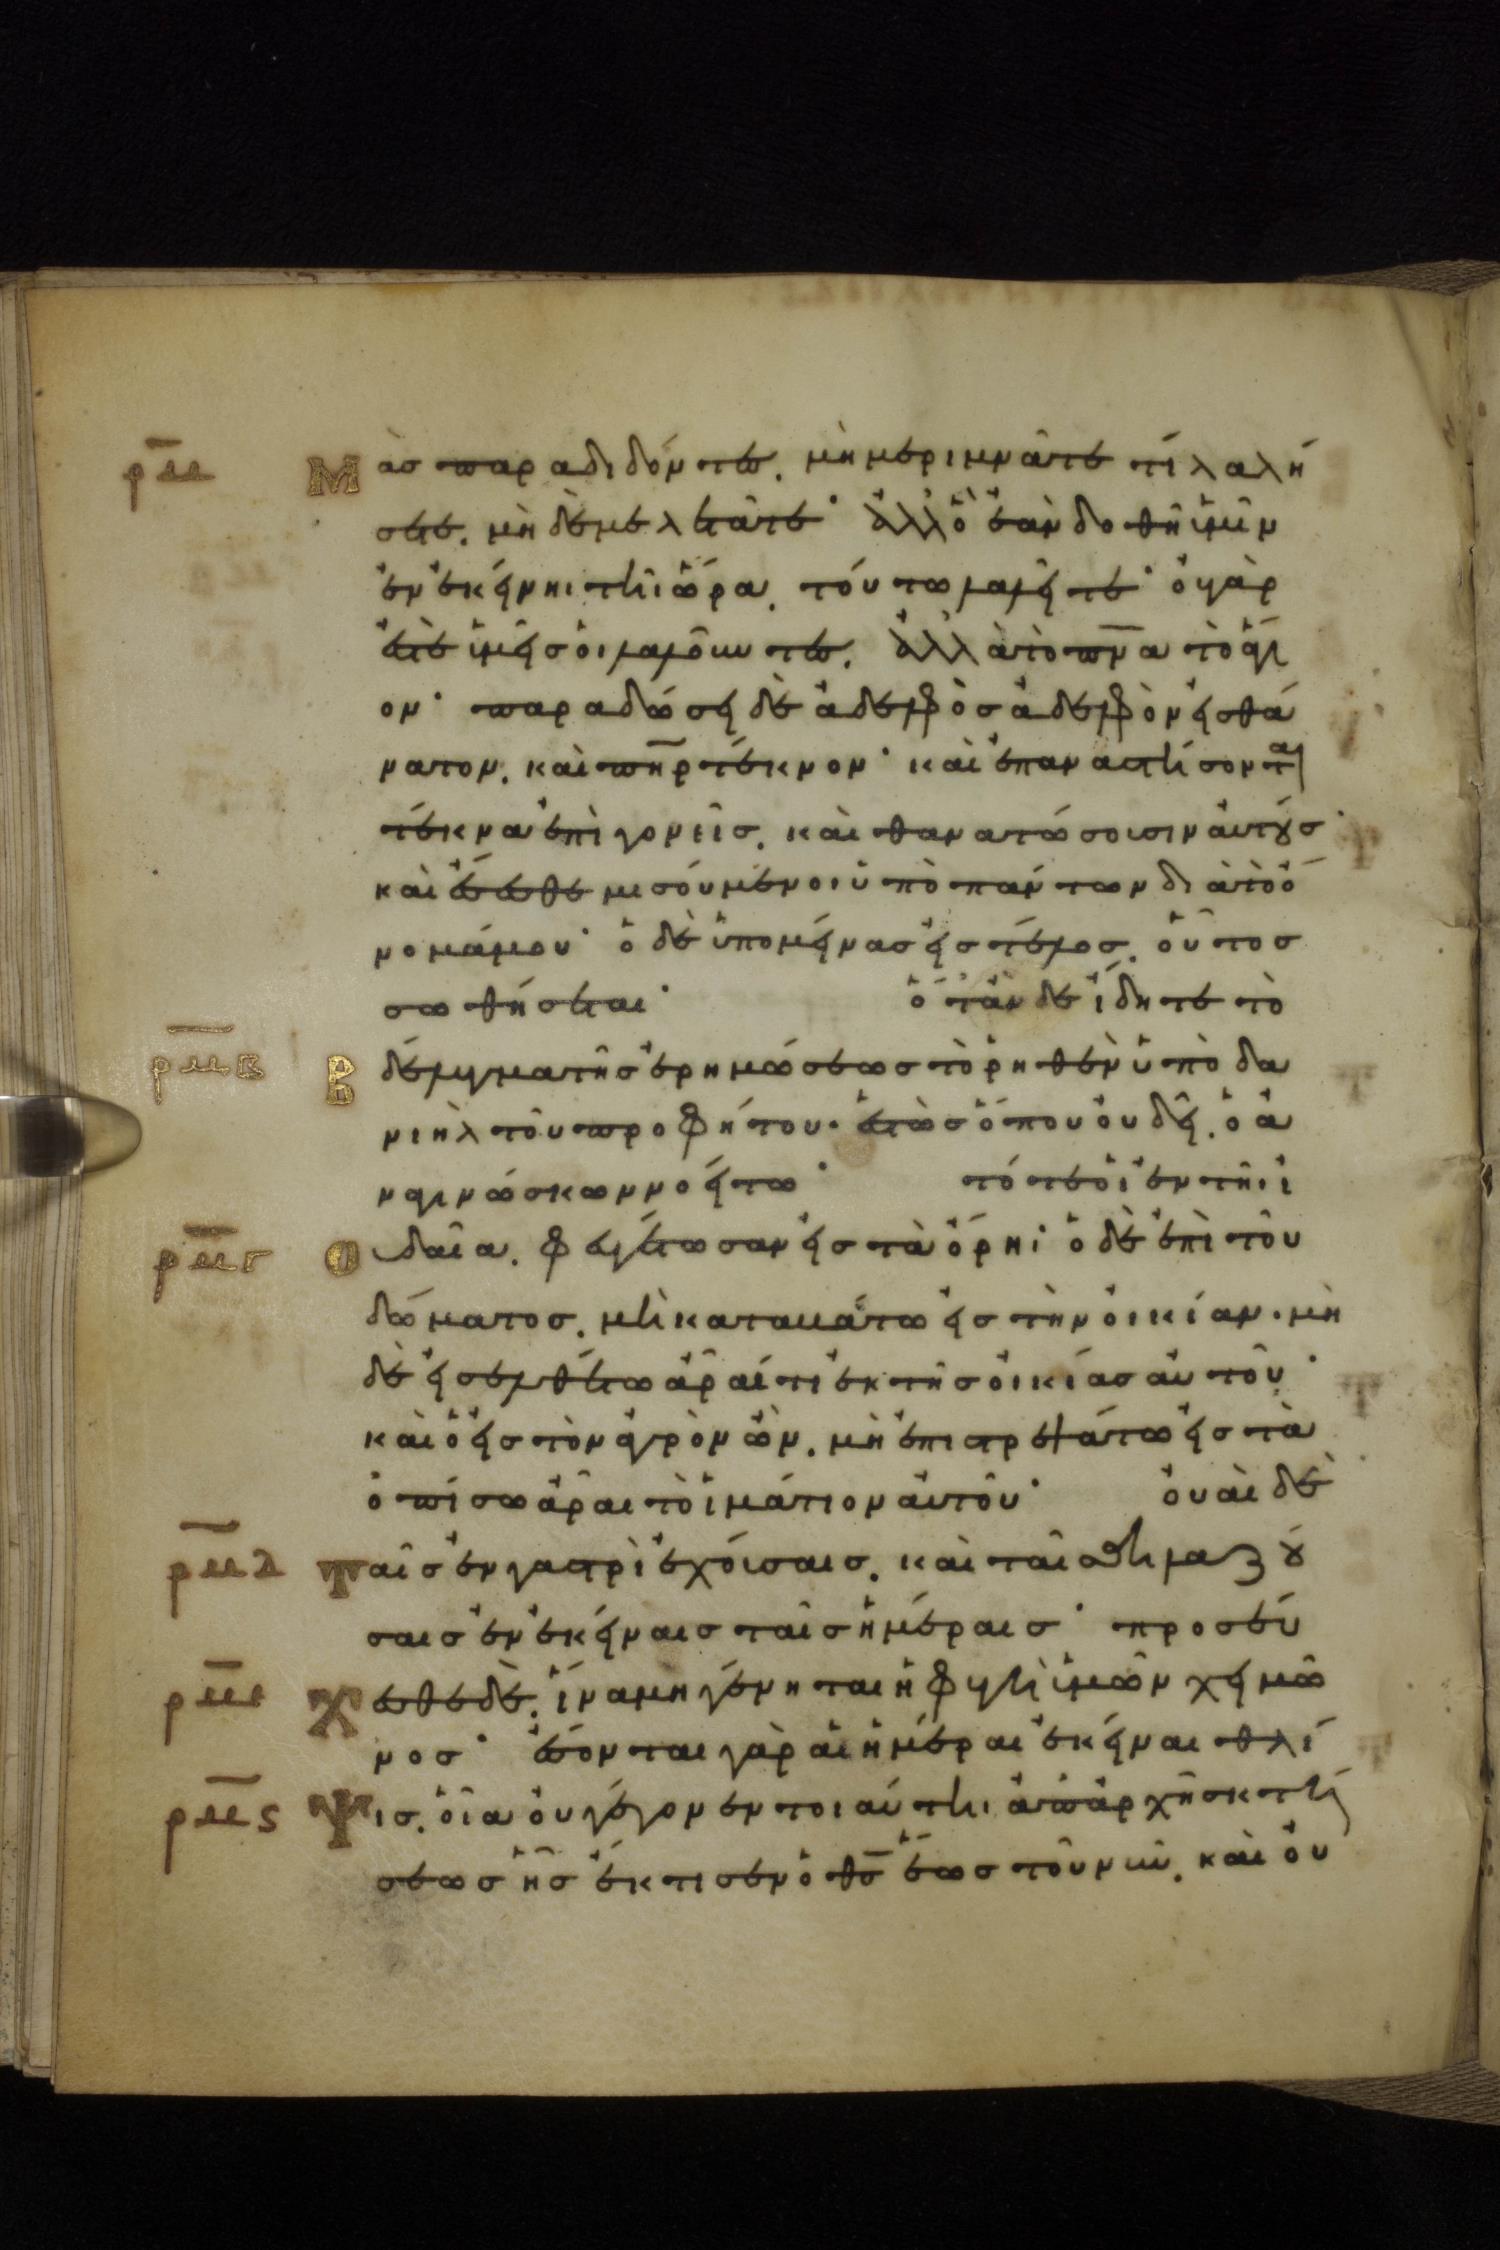 ρμ Μὰσ παραδιδόντεσ. μὴ μεριμνᾶτε τί λαλή
σετε. μὴ δὲ μελετᾶτε· ἀλλ ὃ ἐὰν δοθῆ ὑμῖν
ἐν ἐκείνηι τῆι ὥρα. τοῦτο λαλεῖτε· οὐ γάρ
ἐστε ὑμεῖσ οἱ λαλοῦντεσ. ἀλλὰ τὸ πνα τὸ ἅγι
ον· παραδώσει δὲ ἀδελφὸσ ἀδελφὸν εἰσ θά
νατον. καὶ πηρ τέκνον· καὶ ἐπαναστήσονται
τέκνα ἐπὶ γονεῖσ. καὶ θανατώσουσιν αὐτούσ·
καὶ ἔσεσθε μισούμενοι ὑπὸ πάντων διὰ τὸ ὄ
νομά μου· ὁ δὲ ὑπομείνασ εἰσ τέλοσ. οὗτοσ
σωθήσεται· ὅταν δὲ ἴδητε τὸ
ρμβ Βδέλυγμα τῆσ ἐρημώσεωσ τὸ ῥηθὲν ὑπὸ δα
νιὴλ τοῦ προφήτου· ἑστὼσ ὅπου οὐ δεῖ. ὁ ἀ
ναγινώσκων νοείτω· τότε οἱ ἐν τῆι ἰ
ρμγ Ουδαία. φευγέτωσαν εἰσ τὰ ὄρηι· ὁ δὲ ἐπὶ τοῦ
δώματοσ. μὴ καταβάτω εἰσ τὴν οἰκίαν· μὴ
δὲ εἰσελθέτω ἆραί τι ἐκ τῆσ οἰκίασ αὐτοῦ·
καὶ ὁ εἰσ τὸν ἀγρὸν ὢν. μὴ ἐπιστρεψάτω εἰσ τὰ
ὀπίσω ἆραι τὸ ἱμάτιον αὐτοῦ· οὐαὶ δὲ
ρμδ Ταῖσ ἐν γαστρὶ ἐχούσαισ. καὶ ταῖσ θηλαζού
σαισ ἐν ἐκείναισ ταῖσ ἡμέραισ· προσεύ
ρμε Χεσθε δὲ. ἵνα μὴ γένηται ἡ φυγὴ ὑμῶν χειμῶ
νοσ· ἔσονται γὰρ αἱ ἡμέραι ἐκείναι θλί
ρμς Ψισ. οἵα οὐ γέγονεν τοιαύτηι ἀπ ἀρχῆσ κτή
σεωσ ἧσ ἔκτισεν ὁ θσ ἕωσ τοῦ νῦν. καὶ οὐ